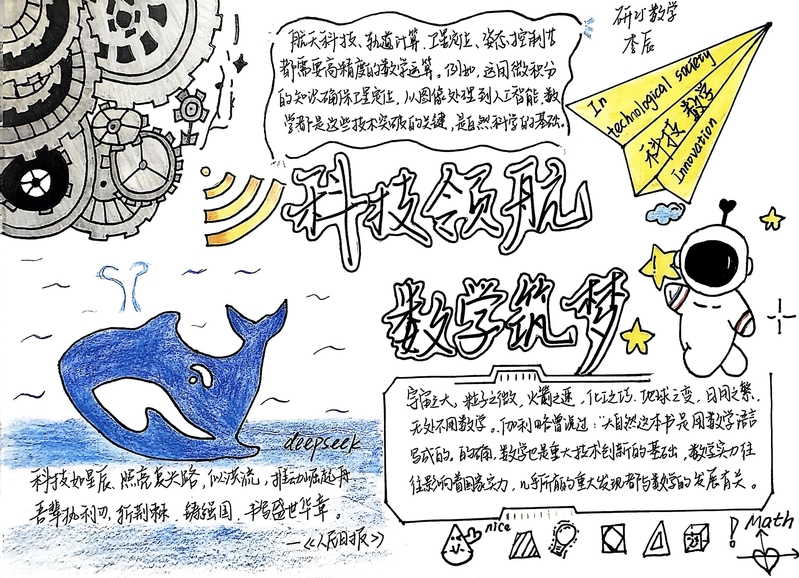 研21数学
李后
航天科技、轨道计算、卫星定位、姿态控制等
都需要高精度的数学运算。例如,运用微积分
的知识确保卫星定位,从图像处理到人工智能,数
学都是这些技术突破的关键,是自然科学的基础。
In
technological society
科技 数学
Innovation
科技领航
数学筑梦
宇宙之大,粒子之微,火箭之速,化工之巧,地球之变,日用之繁,
无处不用数学。伽利略曾说过:“大自然这本书是用数学语言
写成的。的确,数学也是重大技术创新的基础,数学实力往
往影响着国家实力,几乎所有的重大发现都与数学的发展有关。
deepseek
科技如星辰、照亮复兴路,似洪流,推动崛起舟
吾辈执利刃,折荆棘,铸强国,书写盛世华章。
—《人民日报》
nice
Math